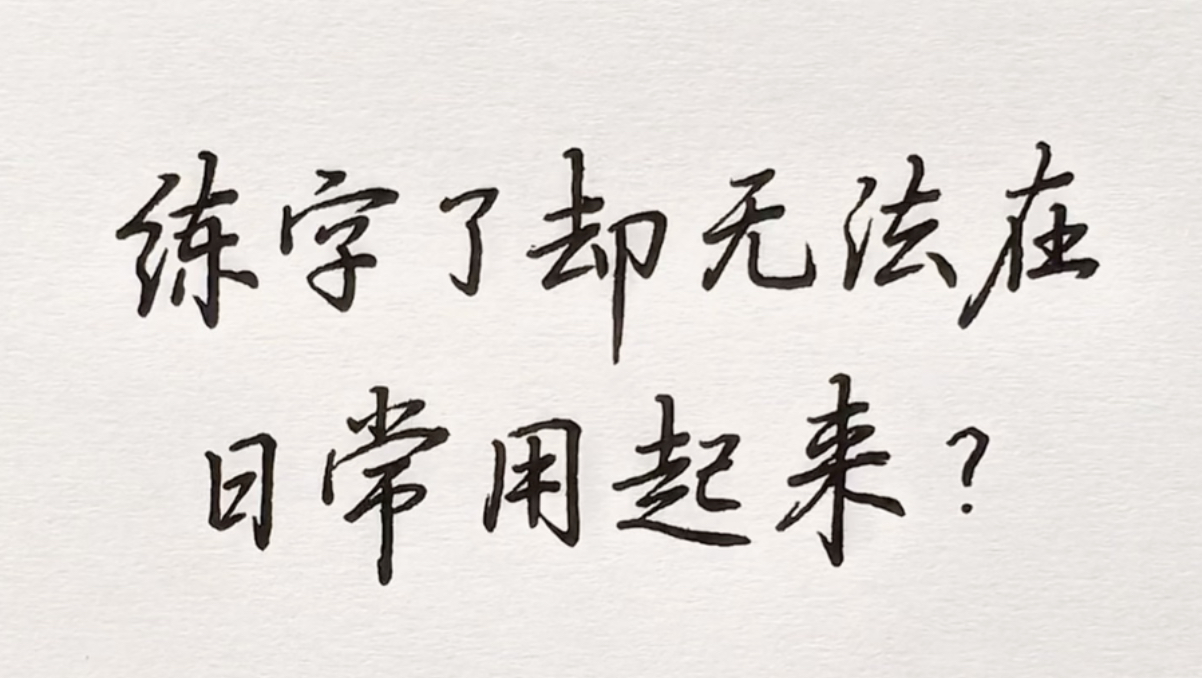 练字了却无法在
日常用起来？